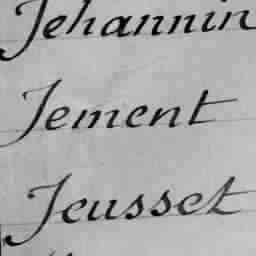 Jehannin
Jement
Jeusset